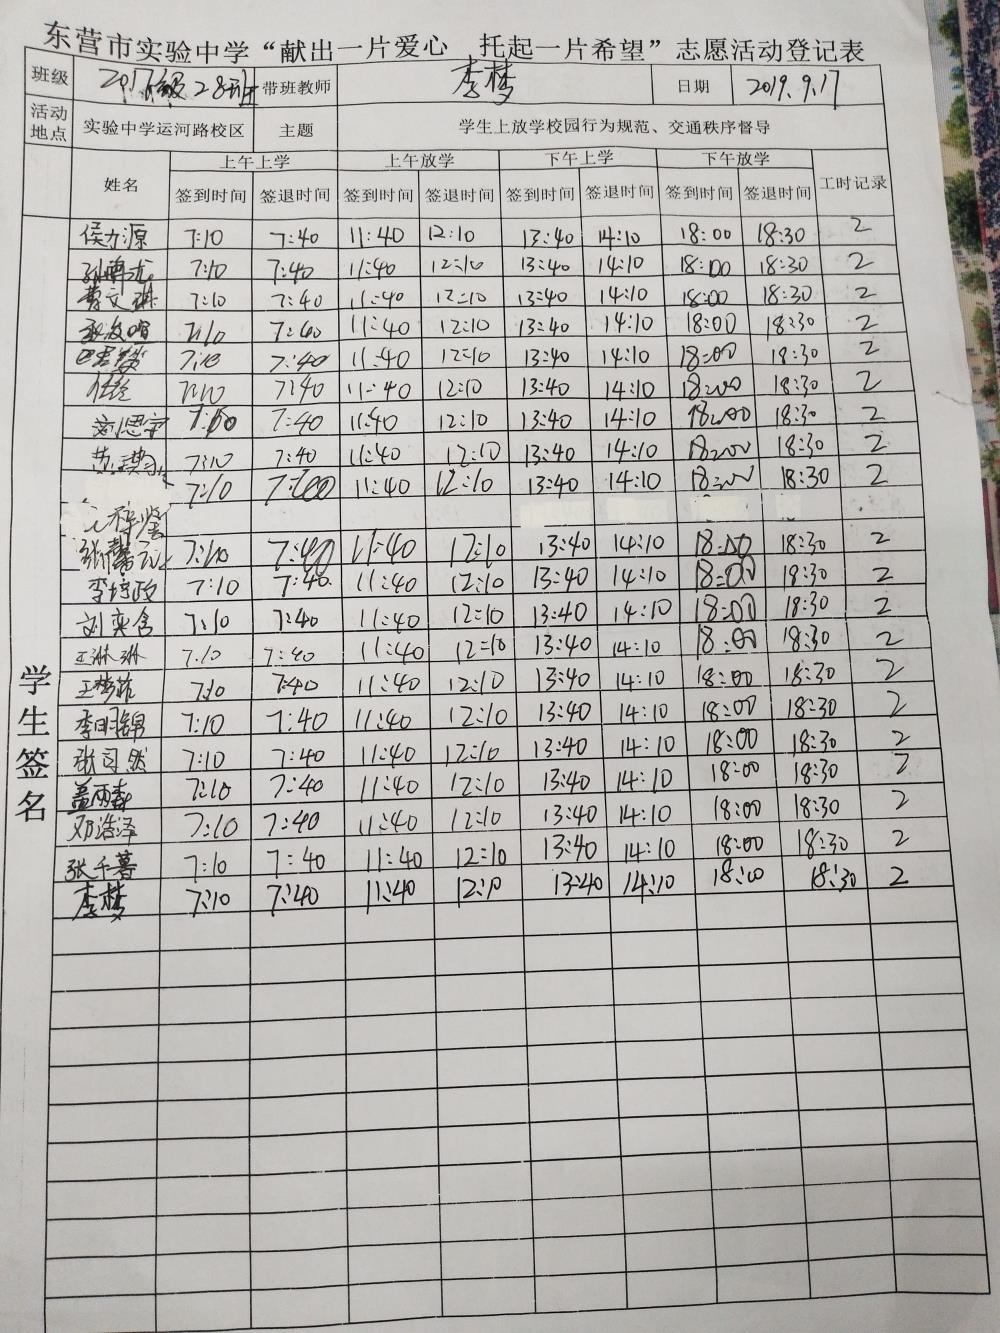 东营市实验中学“献出一片爱心 托起一片希望”志愿活动登记表
班级 2017级28班 带班教师 李梦 日期 2019.9.17
活动地点 实验中学运河路校区 主题 学生上放学校园行为规范、交通秩序督导
上午上学 上午放学 下午上学 下午放学
姓名 签到时间 签退时间 签到时间 签退时间 签到时间 签退时间 签到时间 签退时间 工时记录
学生签名
侯力源 7:10 7:40 11:40 12:10 13:40 14:10 18:00 18:30 2
7:10 7:40 11:40 12:10 13:40 14:10 18:00 18:30 2
黄文琳 7:10 7:40 11:40 12:10 13:40 14:10 18:00 18:30 2
7:10 7:40 11:40 12:10 13:40 14:10 18:00 18:30 2
7:10 7:40 11:40 12:10 13:40 14:10 18:00 18:30 2
7:10 7:40 11:40 12:10 13:40 14:10 18:00 18:30 2
刘思宇 7:10 7:40 11:40 12:10 13:40 14:10 18:00 18:30 2
7:10 7:40 11:40 12:10 13:40 14:10 18:00 18:30 2
7:10 11:40 12:10 13:40 14:10 18:00 18:30 2
张馨元 7:10 7:40 11:40 12:10 13:40 14:10 18:00 18:30 2
李培政 7:10 7:40 11:40 12:10 13:40 14:10 18:00 18:30 2
刘奕含 7:10 7:40 11:40 12:10 13:40 14:10 18:00 18:30 2
王琳琳 7:10 7:40 11:40 12:10 13:40 14:10 18:00 18:30 2
王梦菲 7:10 7:40 11:40 12:10 13:40 14:10 18:00 18:30 2
李明锦 7:10 7:40 11:40 12:10 13:40 14:10 18:00 18:30 2
张司然 7:10 7:40 11:40 12:10 13:40 14:10 18:00 18:30 2
盖雨森 7:10 7:40 11:40 12:10 13:40 14:10 18:00 18:30 2
邓浩泽 7:10 7:40 11:40 12:10 13:40 14:10 18:00 18:30 2
张千寻 7:10 7:40 11:40 12:10 13:40 14:10 18:00 18:30 2
李梦 7:10 7:40 11:40 12:10 13:40 14:10 18:00 18:30 2